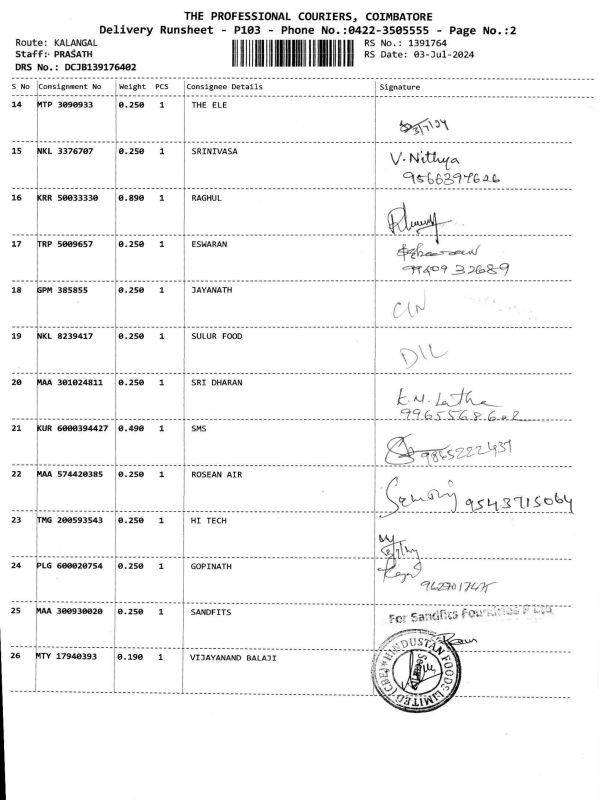 THE PROFESSIONAL COURIERS, COIMBATORE
Delivery Runsheet - P103 - Phone No.:0422-3505555 - Page No.:2
Route: KALANGAL RS No.: 1391764
Staff: PRASATH RS Date: 03-Jul-2024
DRS No.: DCJB139176402
S No Consignment No Weight PCS Consignee Details Signature
14 MTP 3090933 0.250 1 THE ELE
3/7/24
15 NKL 3376707 0.250 1 SRINIVASA V. Nithya
9566397626
16 KRR 50033330 0.890 1 RAGHUL
17 TRP 5009657 0.250 1 ESWARAN
99409 32689
18 GPM 385855 0.250 1 JAYANATH
19 NKL 8239417 0.250 1 SULUR FOOD
DIL
20 MAA 301024811 0.250 1 SRI DHARAN
K.M. Latha
21 KUR 6000394427 0.490 1 SMS
9865222437
22 MAA 574420385 0.250 1 ROSEAN AIR
9543715064
23 TMG 200593543 0.250 1 HI TECH
24 PLG 600020754 0.250 1 GOPINATH
25 MAA 300930020 0.250 1 SANDFITS
For Sandfits Foundries P Ltd
26 MTY 17940393 0.190 1 VIJAYANAND BALAJI
HINDUSTAN FOODS LIMITED (CBE)